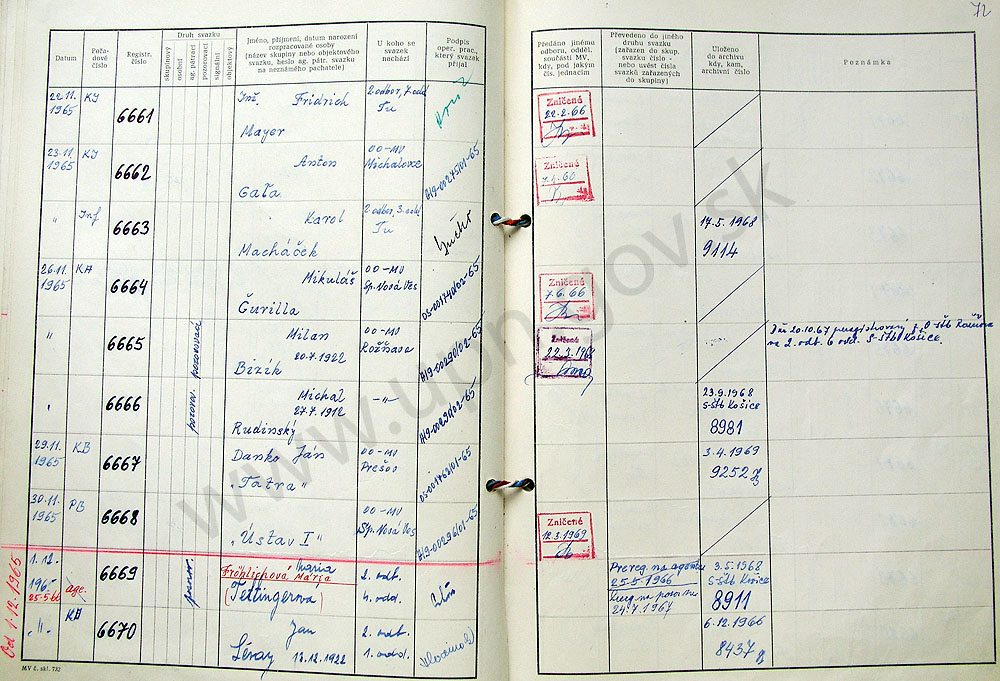 72
Datum
Pořadové číslo
Registr. číslo
Druh svazku
skupinový
osobní
ag. pátrací
pozorovací
signální
objektový
Jméno, příjmení, datum narození
rozpracované osoby
(název skupiny nebo objektového
svazku, heslo ag. pátr. svazku
na neznámého pachatele)
U koho se
svazek
nachází
Podpis
oper. prac.,
který svazek
přijal
Předáno jinému
odboru, odděl.
součásti MV,
kdy, pod jakým
čís. jednacím
Převedeno do jiného
druhu svazku
(zařazen do skup.
svazku číslo -
nebo uvést čísla
svazků zařazených
do skupiny)
Uloženo
do archivu
kdy, kam,
archivní číslo
Poznámka
22.11. 1965
KI
6661
Inž. Fridrich
Mayer
2 odbor, 7. odd
Tu
Zničené
22.2.66
23.11. 1965
KI
6662
Anton
Gaľa
OO-MV
Michalovce
A19-00275/01-65
Zničené
" Inf
6663
Karol
Macháček
2 odbor, 3. odd
Tu
17.5.1968
9114
26.11. 1965
KA
6664
Mikuláš
Čurilla
OO-MV
Sp. Nová Ves
OS-00174/02-65
Zničené
7.6.66
"
6665
pozorovací
Milan
20.7.1922
Bizík
OO-MV
Rožňava
A19-00290/02-65
Zničené
6666
pozorov.
Michal
27.7.1912
Rudinský
-"-
A19-00290/02-65
23.9.1968
S-ŠtB Košice
8981
29.11. 1965
KB
6667
Danko Ján
"Tatra"
OO-MV
Prešov
OS-001762/01-65
3.4.1969
9252
30.11. 1965
PB
6668
"Ústav I"
OO-MV
Sp. Nová Ves
A19-00296/01-65
Zničené
12.3.1969
Od 1.12.1965
1.12.
196
25.5.66
age.
6669
pozor.
Mária
Fröhlichová Mária
(Tettingerova)
2. odb.
4. odd.
Prereg. na agenta
25.5.1966
24.7.1967
3.5.1968
S-ŠtB Košice
8911
"
KA
6670
Jan
Léray 13.12.1922
2. odb.
1. odd.
6.12.1966
8437
MV č. skl. 732
www.upn.gov.sk